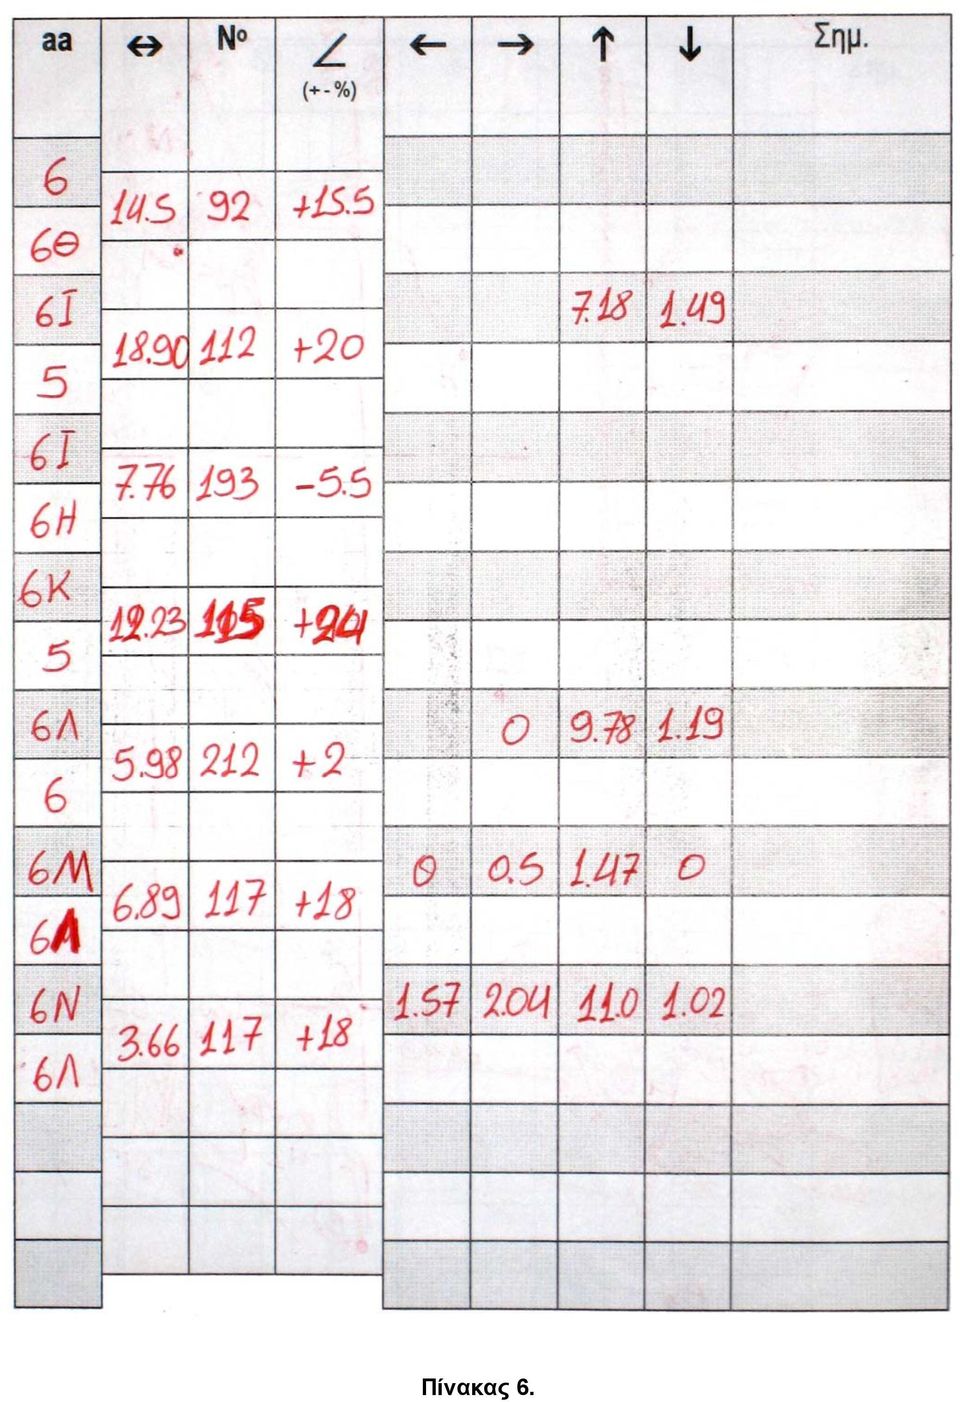 αα ↔ Nº ∠ ← → ↑ ↓ Σημ.
(+-%)
6
14.5 92 +15.5
6Θ
6Ι 7.18 1.49
18.90 112 +20
5
6Ι
7.76 193 -5.5
6Η
6Κ
12.23
5
6Λ 0 9.78 1.19
5.98 212 +2
6
6Μ 0 0.5 1.47 0
6.89 117 +18
6Λ
6Ν 1.57 2.04 11.0 1.02
3.66 117 +18
6Λ
Πίνακας 6.